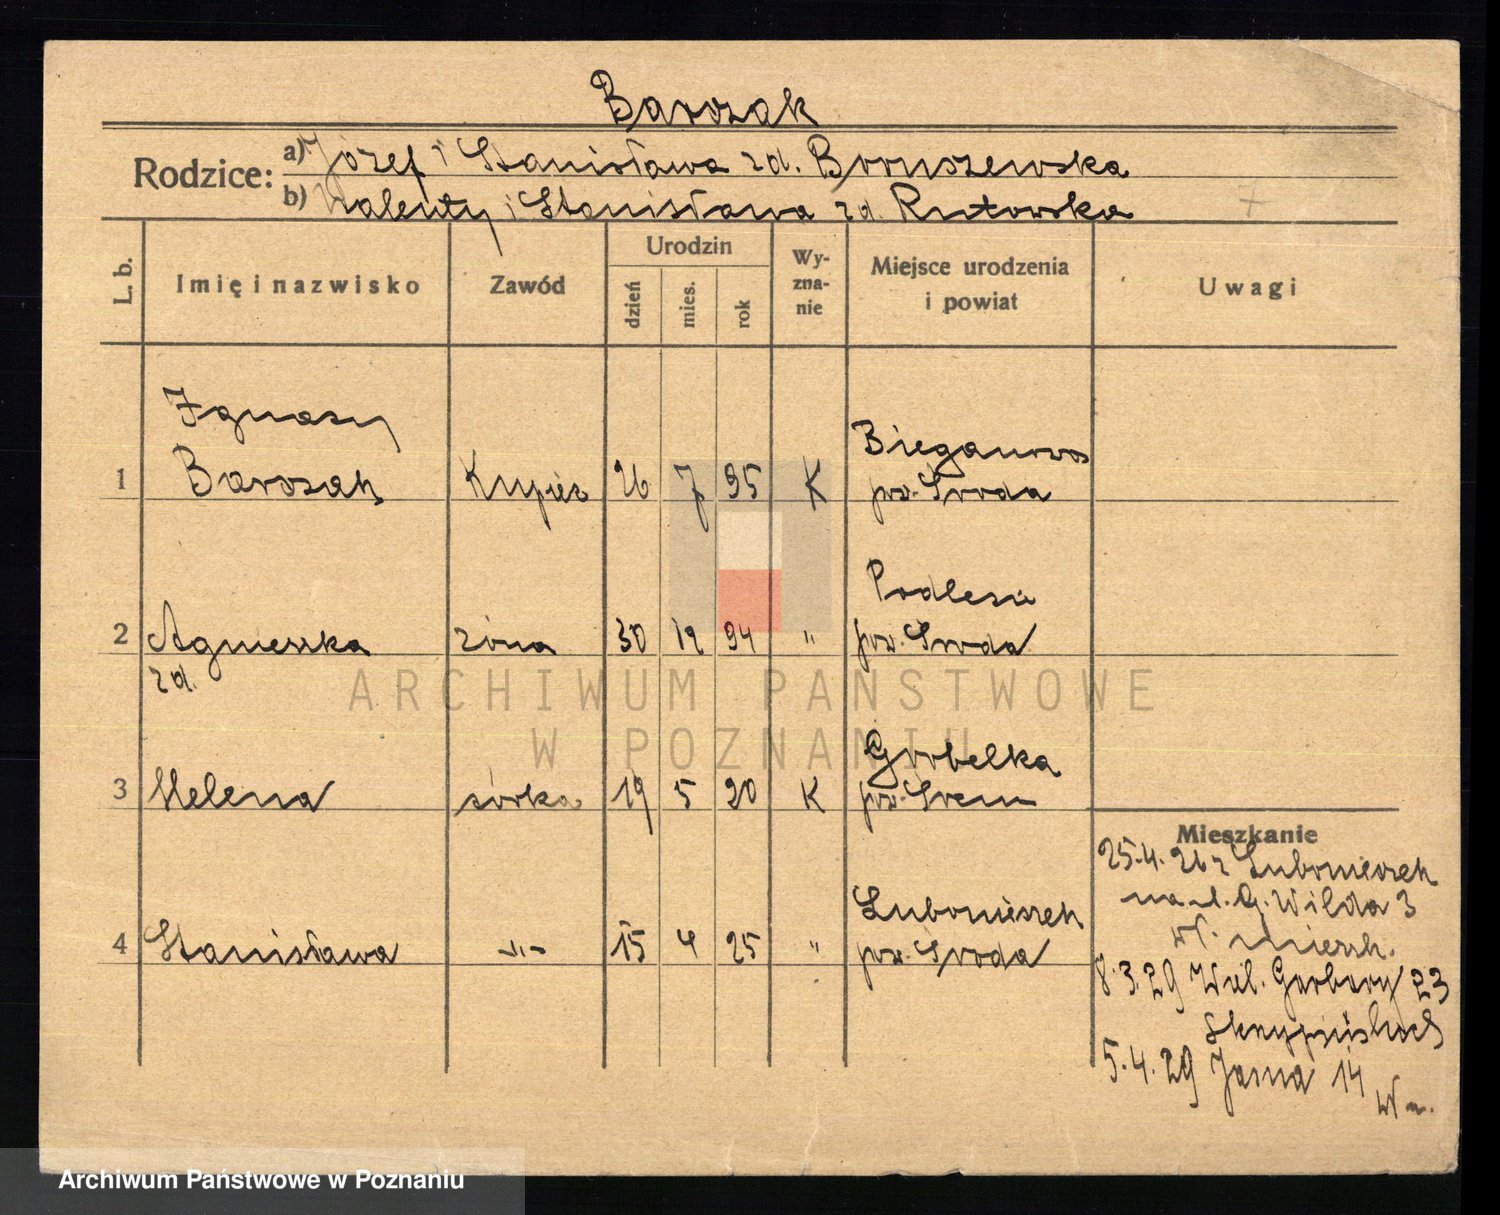 Barczak
Rodzice: a) Józef i Stanisława zd. Boruszewska
b) Walenty i Stanisława zd. Rutowska
7
L. b. Imię i nazwisko Zawód Urodzin dzień mies. rok Wy-zna-nie Miejsce urodzenia i powiat Uwagi
Ignacy
1 Barczak Kupiec 26 7 95 K Bieganowo
pow. Środa
Podlesie
2 Agnieszka żona 30 12 94 " pow. Środa
zd.
Gorbelka
3 Helena córka 19 5 20 K pow. Śrem
Mieszkanie
25.4.26 z Lubonieczek
na G. Wilda 3
wł. mieszk.
Lubonieczek
4 Stanisława -"- 15 4 25 " pow. Środa
8.3.29 Wal. Garbary 23
5.4.29 Jasna 14
ARCHIWUM PAŃSTWOWE
W POZNANIU
Archiwum Państwowe w Poznaniu